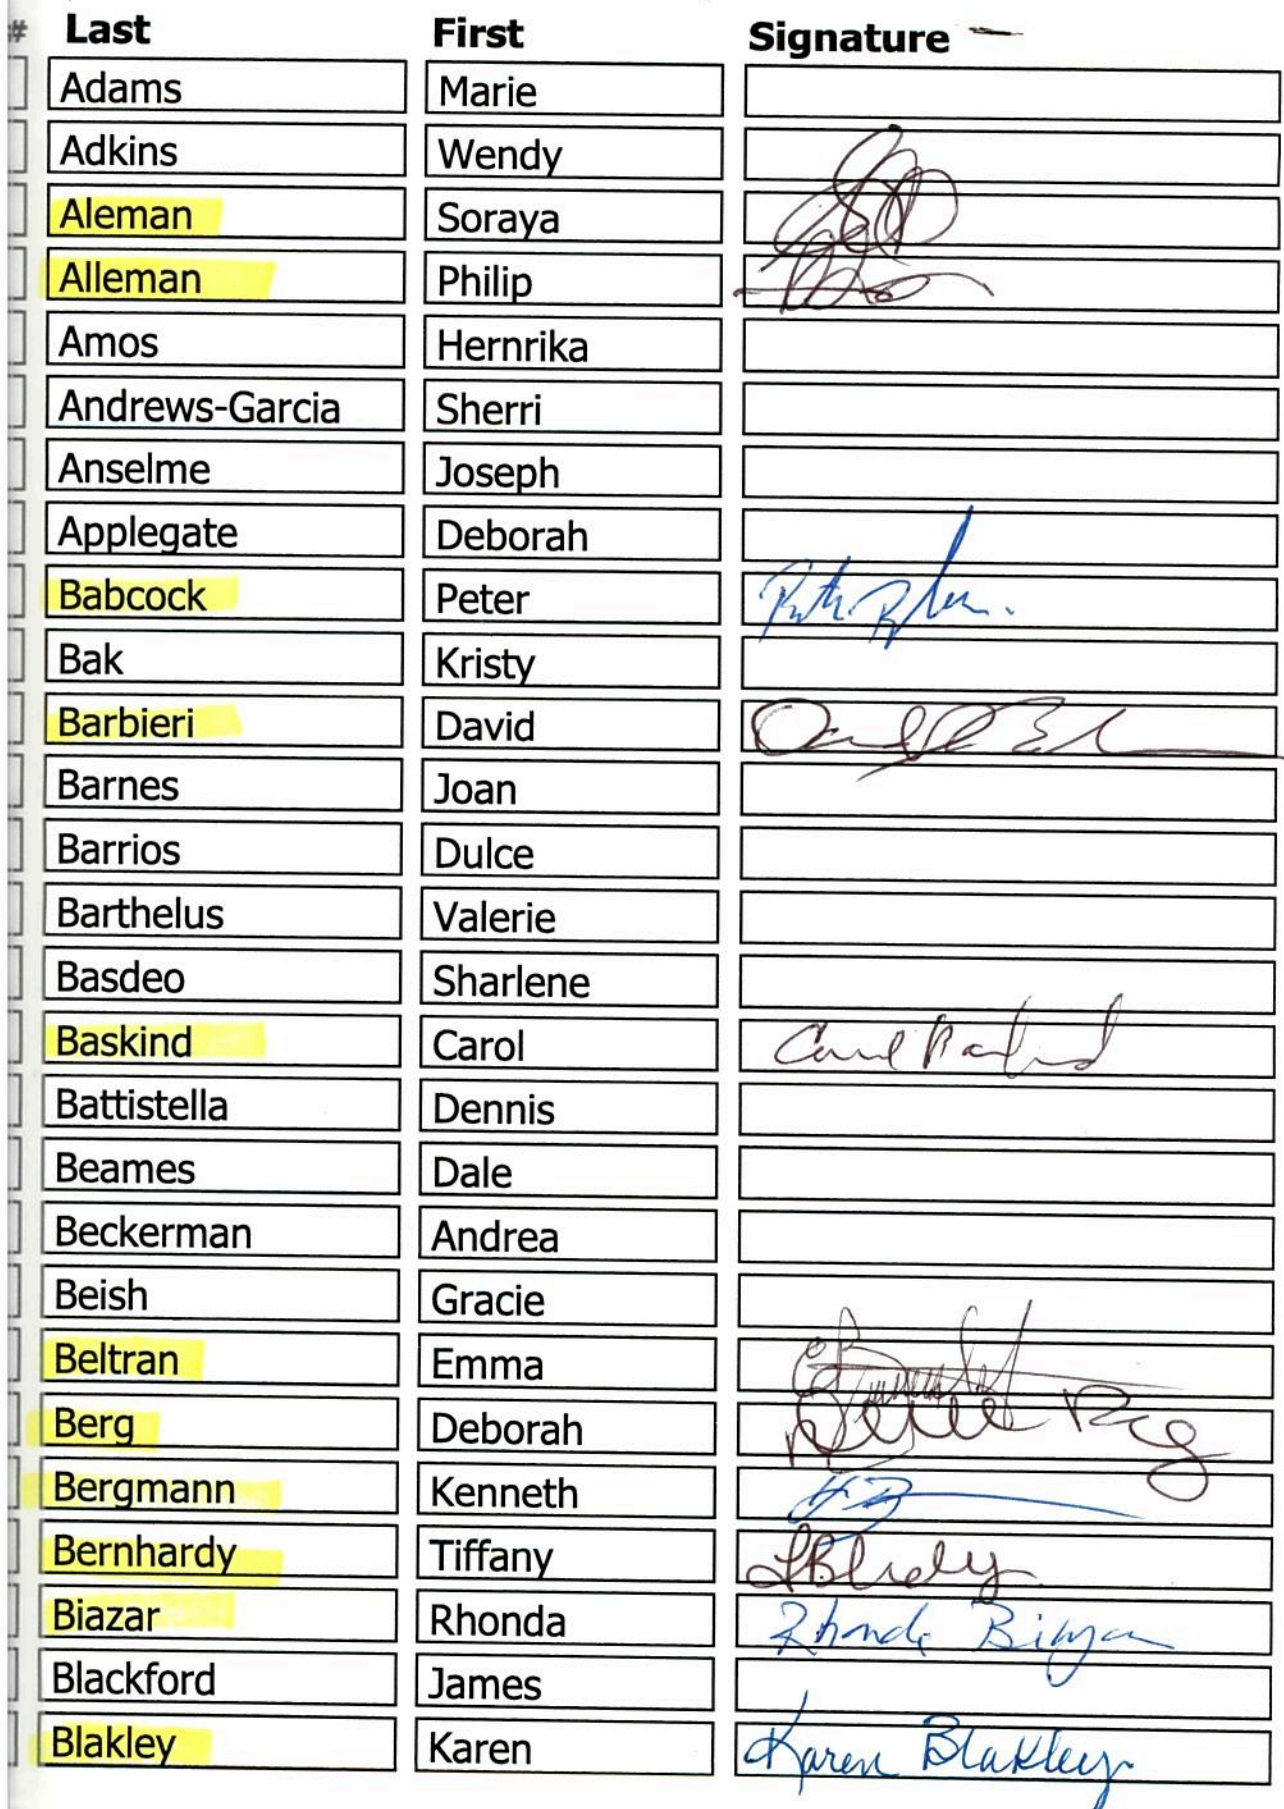 # Last First Signature
Adams Marie
Adkins Wendy
Aleman Soraya
Alleman Philip
Amos Hernrika
Andrews-Garcia Sherri
Anselme Joseph
Applegate Deborah
Babcock Peter
Bak Kristy
Barbieri David
Barnes Joan
Barrios Dulce
Barthelus Valerie
Basdeo Sharlene
Baskind Carol Carol Baskind
Battistella Dennis
Beames Dale
Beckerman Andrea
Beish Gracie
Beltran Emma
Berg Deborah
Bergmann Kenneth
Bernhardy Tiffany
Biazar Rhonda Rhonda Biazar
Blackford James
Blakley Karen Karen Blakley